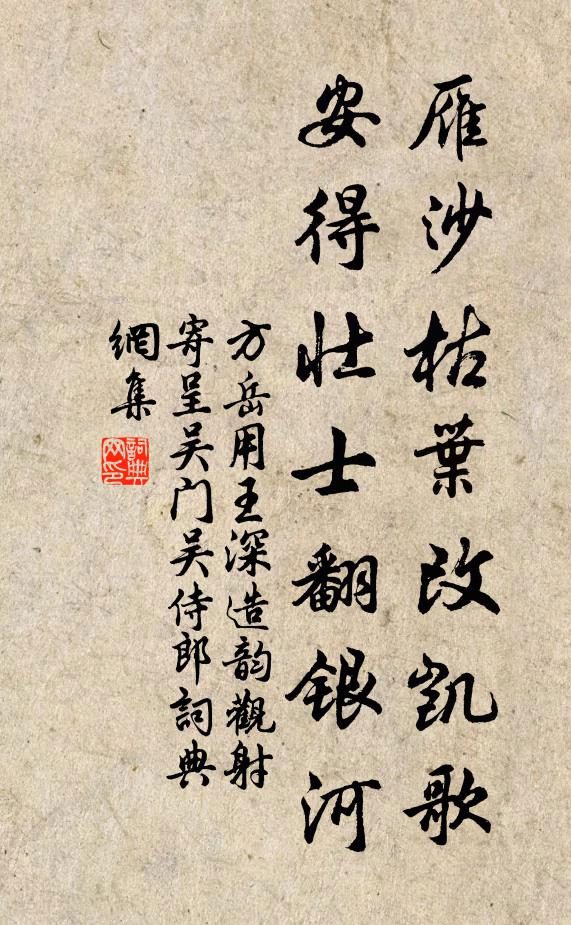 雁沙枯葉改凱歌
安得壯士翻銀河
方岳用王深造韵觀射
寄呈吴门吴侍郎詞典
網集
詞典网印